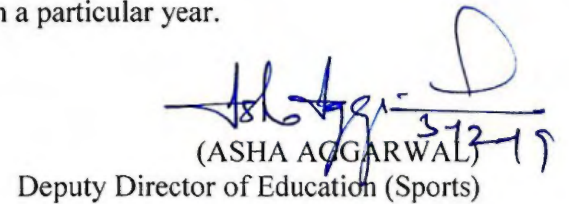 n a particular year.
Asha Aggr
3-12-19
(ASHA AGGARWAL)
Deputy Director of Education (Sports)